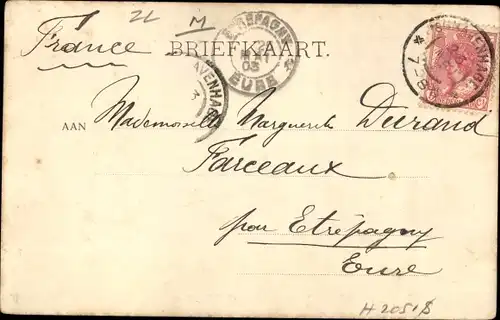 22 M
France
BRIEFKAART.
ETREPAGNY
03
EURE
'S GRAVENHAGE
7-8
AAN Mademoiselle Marguerite Durand
Farceaux
par Etrépagny
Eure
H 2051